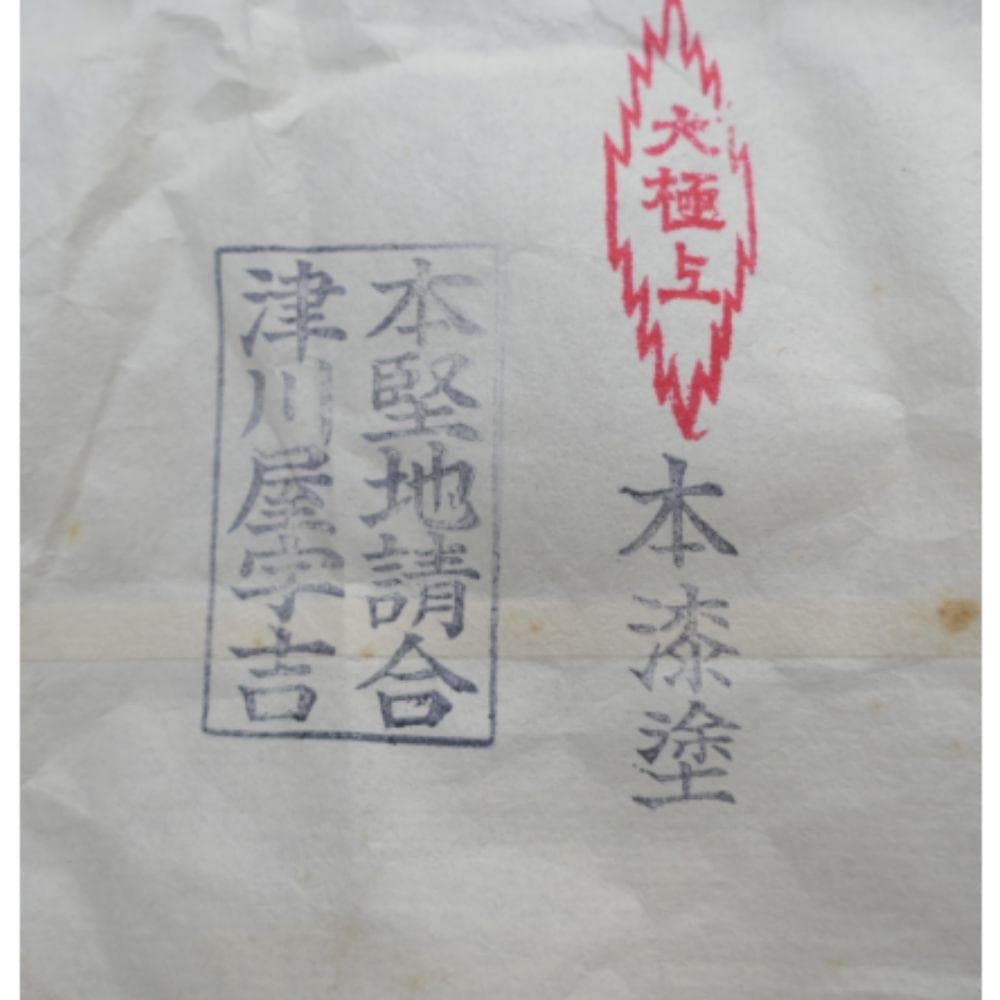 大極上
本漆塗
本堅地請合
津川屋宇吉